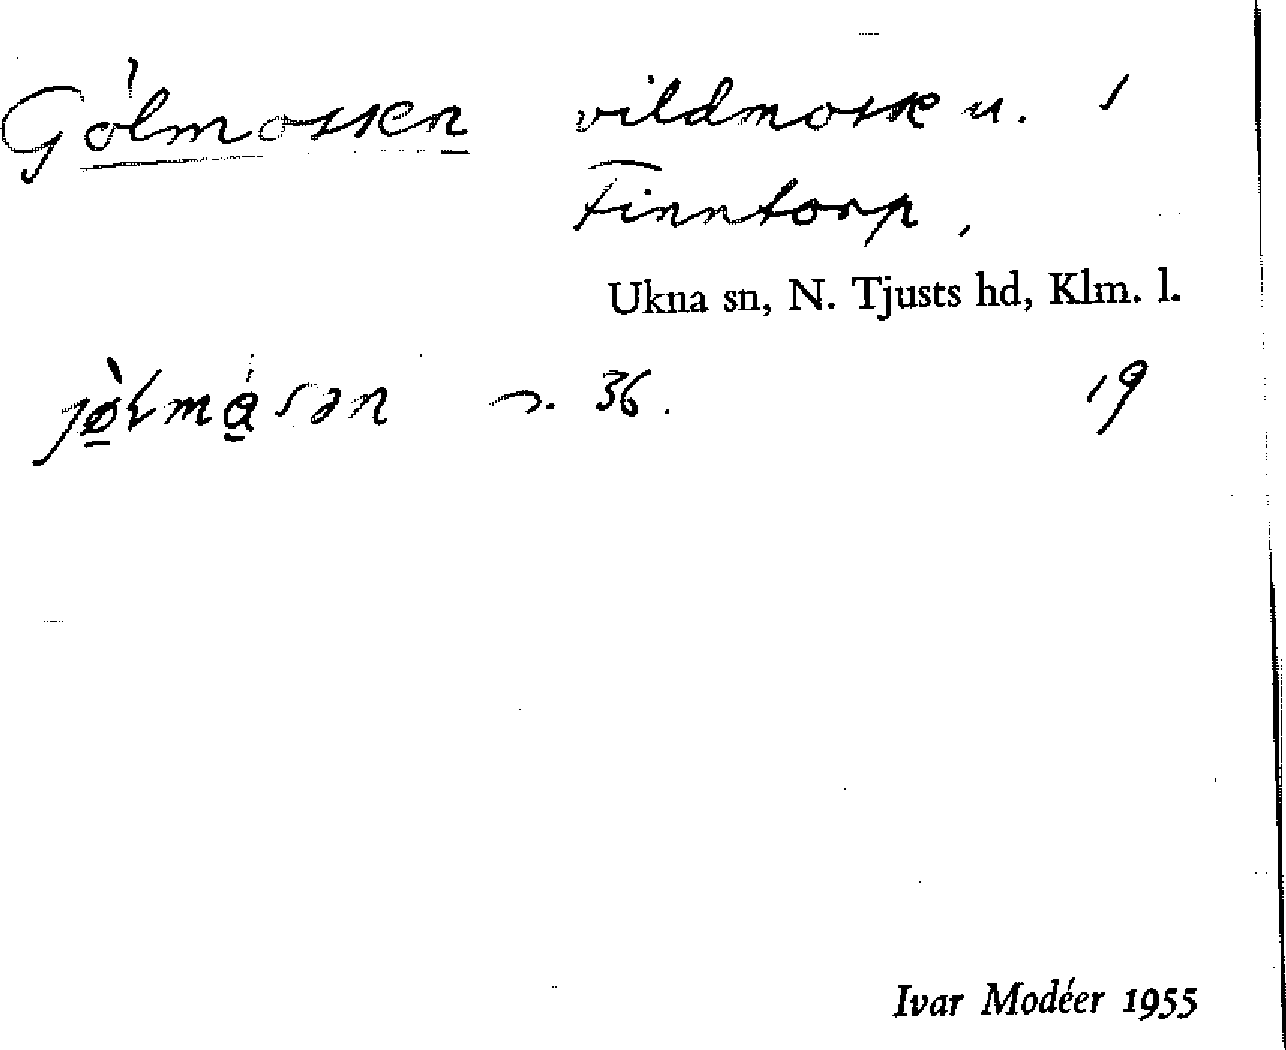 Gölmossen vildmosse u. 1
Finntorp,
Ukna sn, N. Tjusts hd, Klm. l.
s. 36. 19
Ivar Modéer 1955